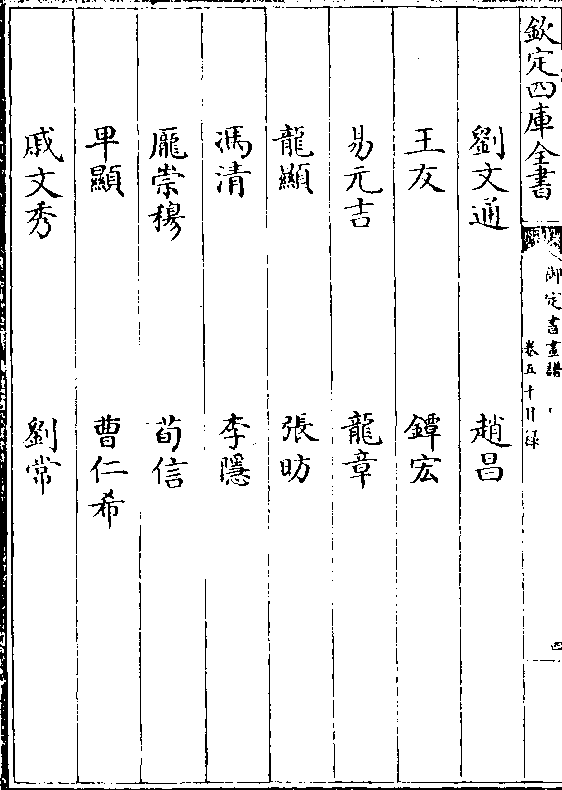 欽定四庫全書
御定書畫譜
卷五十目錄
四
劉文通 趙昌
王友 鐔宏
易元吉 龍章
龍顯 張昉
馮清 李隱
龎崇穆 荀信
甲顯 曹仁希
戚文秀 劉常